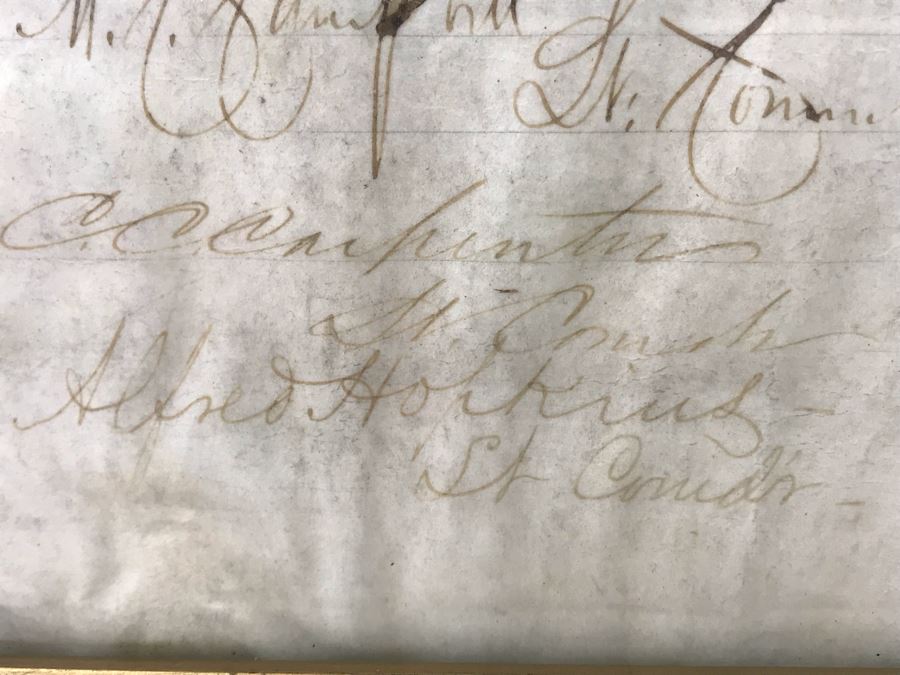 M.
Lt. Comm
C. C. Carpenter
Lt Comdr
Alfred Hopkins -
Lt Comdr -